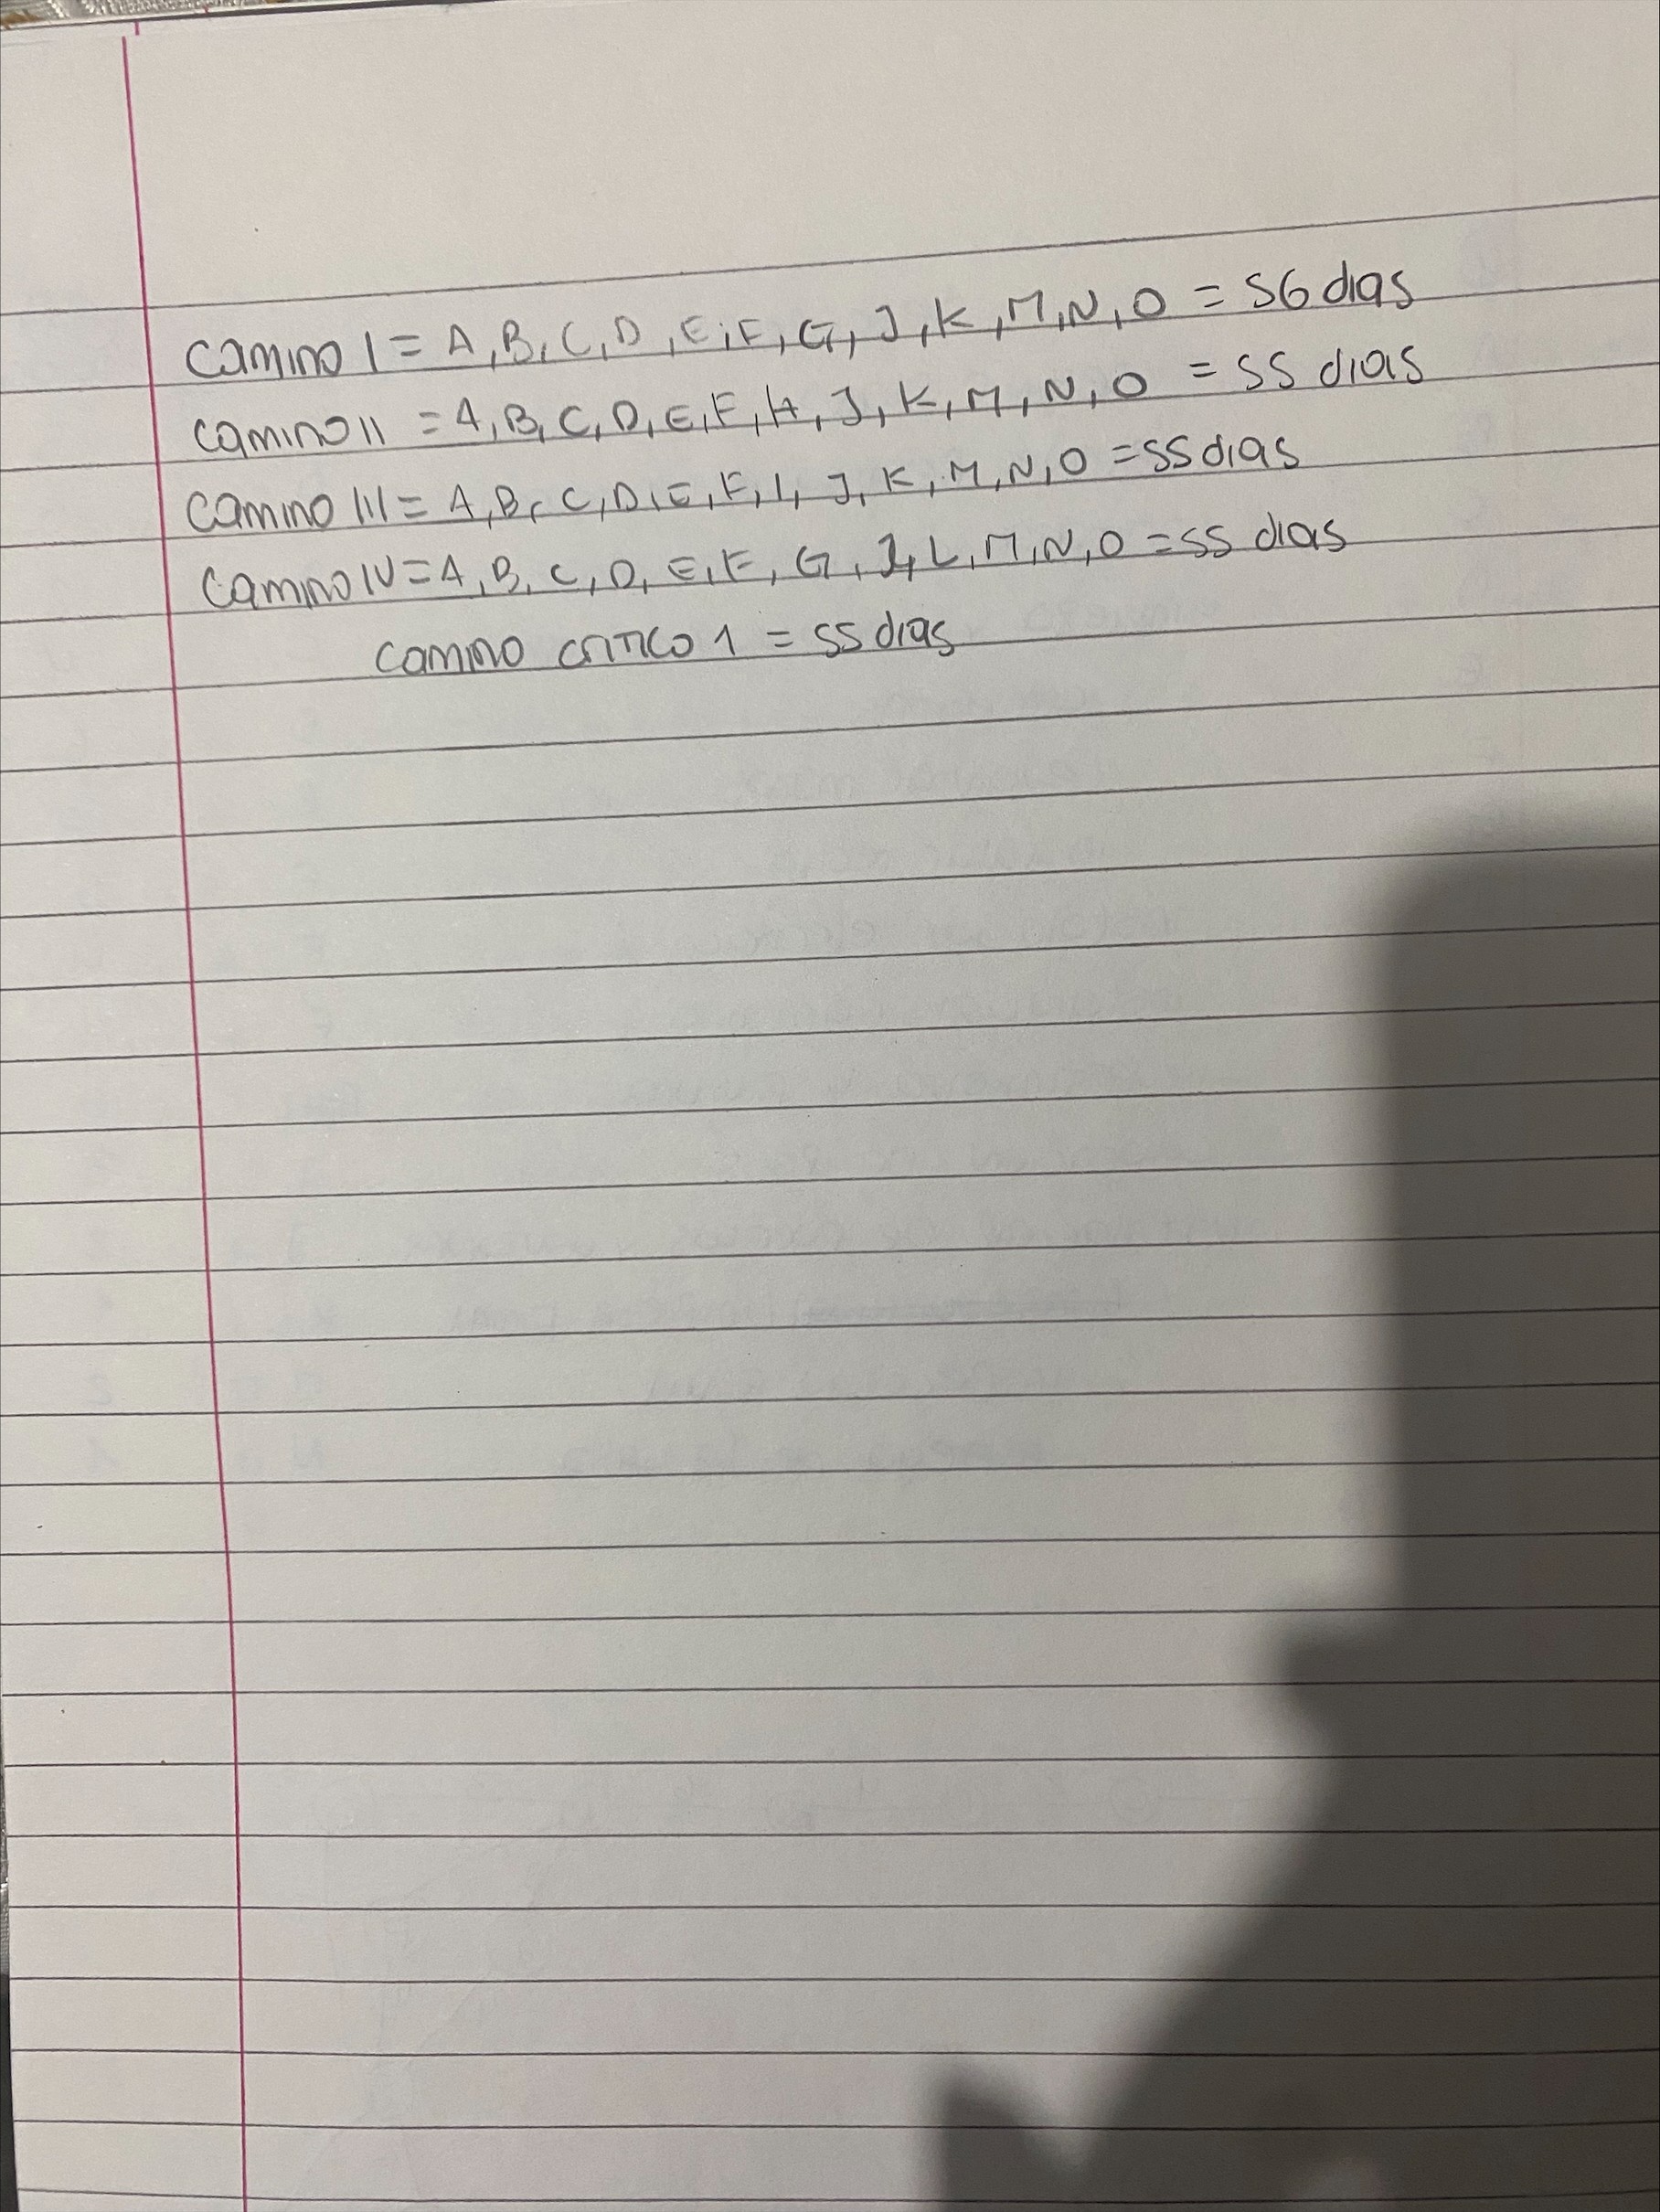 Camino I = A, B, C, D, E, F, G, J, K, M, N, O = 56 dias
Camino II = A, B, C, D, E, F, H, J, K, M, N, O = 55 dias
Camino III = A, B, C, D, E, F, I, J, K, M, N, O = 55 dias
Camino IV = A, B, C, D, E, F, G, J, L, M, N, O = 55 dias
Camino critico 1 = 55 dias